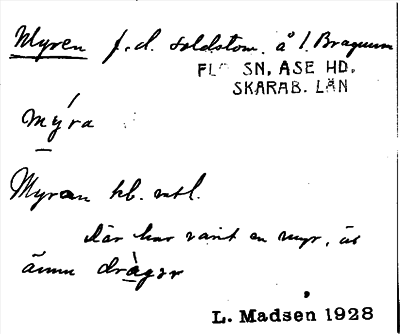 Myren f.d. soldstom. å l. Bragnum
FLO SN, ASE HD.
SKARAB. LÄN
mýra
Myran hb. vstl.
där har varit en myr, är
ännu dràger
L. Madsen 1928